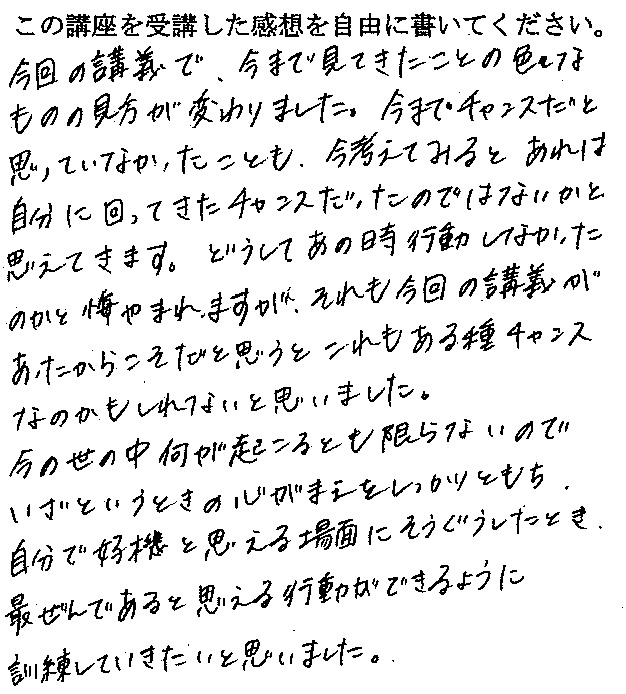 この講座を受講した感想を自由に書いてください。
今回の講義で、今まで見てきたことの色々な
ものの見方が変わりました。今までチャンスだと
思っていなかったことも、今考えてみるとあれは
自分に回ってきたチャンスだったのではないかと
思えてきます。どうしてあの時行動しなかった
のかと悔やまれますが、それも今回の講義が
あったからこそだと思うとこれもある種チャンス
なのかもしれないと思いました。
今の世の中何が起こるとも限らないので
いざというときの心がまえをしっかりともち、
自分で好機と思える場面にそうぐうしたとき、
最ぜんであると思える行動ができるように
訓練していきたいと思いました。